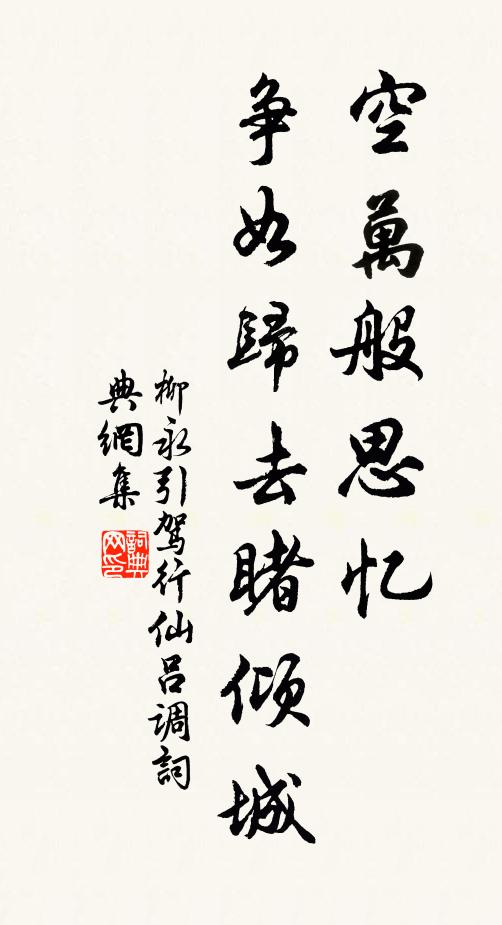 空萬般思忆
争如歸去睹倾城
柳永引驾行仙吕调詞
典網集
詞典网印